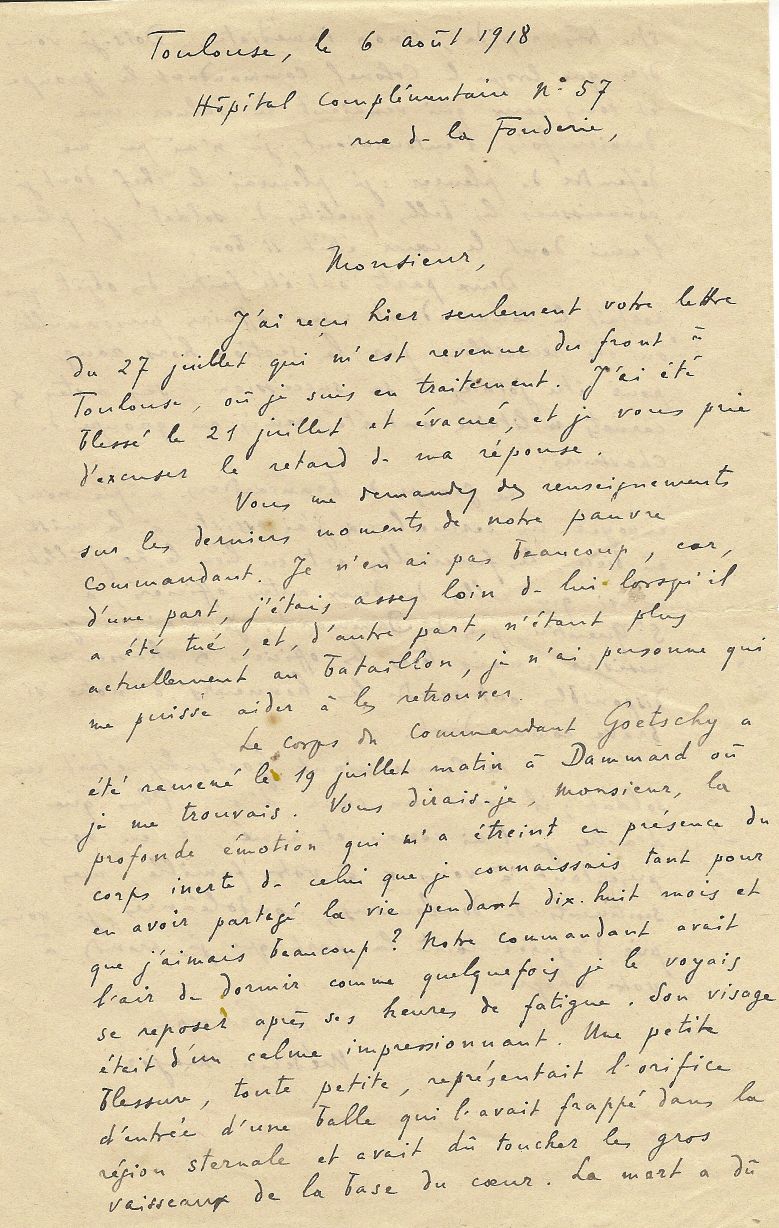 Toulouse, le 6 août 1918
Hôpital complémentaire n° 57
rue de la Fonderie,
Monsieur,
J'ai reçu hier seulement votre lettre
du 27 juillet qui m'est revenue du front à
Toulouse, où je suis en traitement. J'ai été
blessé le 21 juillet et évacué, et je vous prie
d'excuser le retard de ma réponse.
Vous me demandez des renseignements
sur les derniers moments de notre pauvre
commandant. Je n'en ai pas beaucoup, car,
d'une part, j'étais assez loin de lui lorsqu'il
a été tué, et, d'autre part, n'étant plus
actuellement au bataillon, je n'ai personne qui
me puisse aider à les retrouver.
Le corps du commandant Goetschy a
été ramené le 19 juillet matin à Dammard où
je me trouvais. Vous dirais-je, monsieur, la
profonde émotion qui m'a étreint en présence du
corps inerte de celui que je connaissais tant pour
en avoir partagé la vie pendant dix-huit mois et
que j'aimais beaucoup ? Notre commandant avait
l'air de dormir comme quelquefois je le voyais
se reposer après ses heures de fatigue. Son visage
était d'un calme impressionnant. Une petite
blessure, toute petite, représentait l'orifice
d'entrée d'une balle qui l'avait frappé dans la
région sternale et avait dû toucher les gros
vaisseaux de la base du cœur. La mort a dû